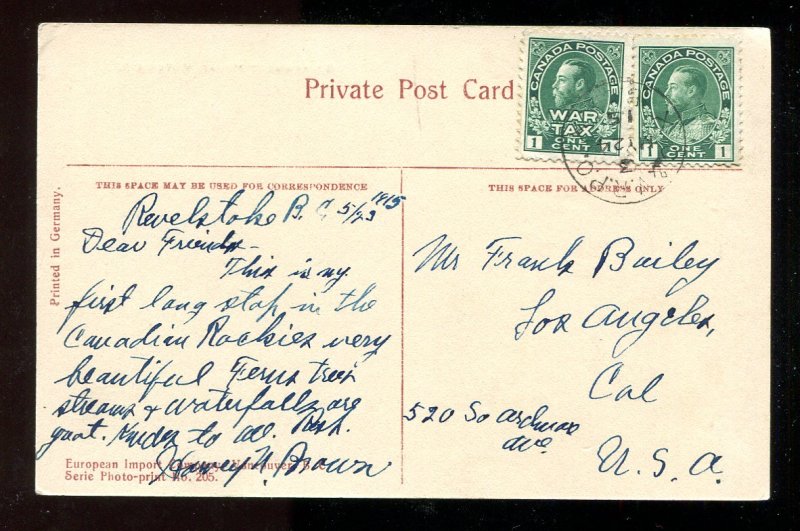 Private Post Card
CANADA POSTAGE
WAR
TAX
1 ONE CENT
CANADA POSTAGE
1 ONE CENT 1
THIS SPACE MAY BE USED FOR CORRESPONDENCE
THIS SPACE FOR ADDRESS ONLY
Printed in Germany.
Revelstoke B. C 5/23 1915
Dear Friends—
This is my
first long stop in the
Canadian Rockies very
beautiful Ferns trees
streams & waterfalls are
great. to all.
Harvey Brown
Mr Frank Bailey
Los Angeles,
Cal
520 So
ave.
U. S. A.
European Import Company, Vancouver, B. C.
Serie Photo-print No. 205.